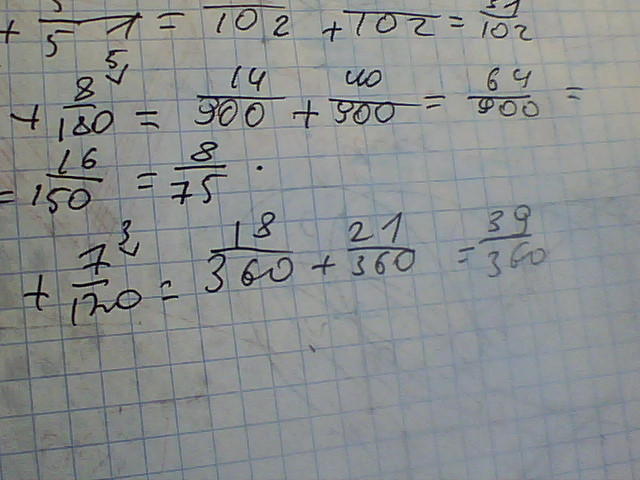 + 5/51 = /102 + /102 = 31/102
+ 8/180 5 = 14/900 + 40/900 = 64/900 =
= 16/150 = 8/75 .
+ 7/120 3 = 18/360 + 21/360 = 39/360